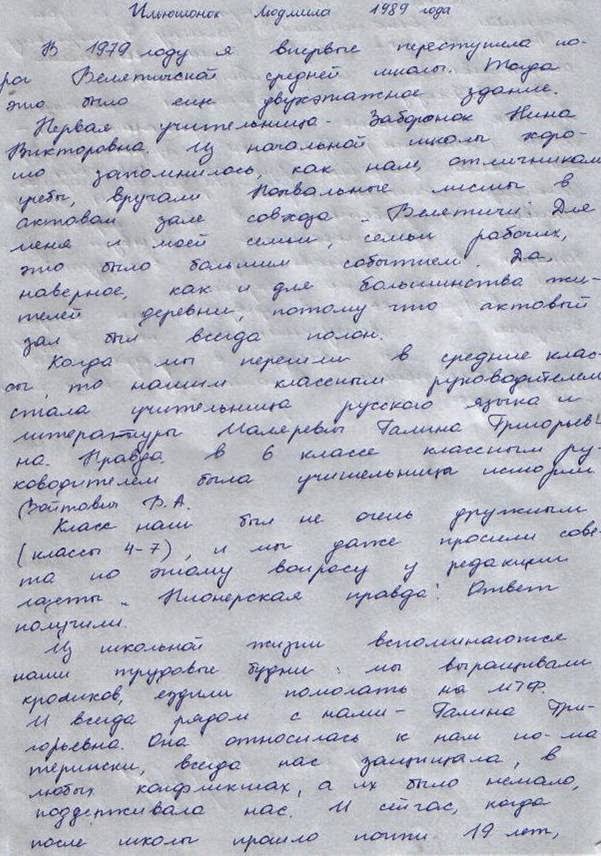 Ильюшонок Людмила 1989 года
В 1979 году я впервые переступила по-
рог Велетичской средней школы. Тогда
это было ещё двухэтажное здание.
Первая учительница - Заборонок Нина
Викторовна. Из начальной школы хоро-
шо запомнилось, как нам, отличникам
учёбы, вручали Похвальные листы в
актовом зале совхоза „Велетичи". Для
меня и моей семьи, семьи рабочих,
это было большим событием. Да,
наверное, как и для большинства жи-
телей деревни, потому что актовый
зал был всегда полон.
Когда мы перешли в средние клас-
сы, то нашим классным руководителем
стала учительница русского языка и
литературы Малеревы Галина Григорьев-
на. Правда в 6 классе классным ру-
ководителем была учительница истории
Войтович В.А.
Класс наш был не очень дружным
(классы 4-7), и мы даже просили сове-
та по этому вопросу у редакции
газеты „Пионерская правда". Ответ
получили.
Из школьной жизни вспоминаются
нами трудовые будни: мы выращивали
кроликов, ездили помогать на МТФ.
И всегда рядом с нами - Галина Гри-
горьевна. Она относилась к нам по-ма
терински, всегда нас защищала, в
любых конфликтах, а их было немало,
поддерживала нас. И сейчас, когда
после школы прошло почти 19 лет,